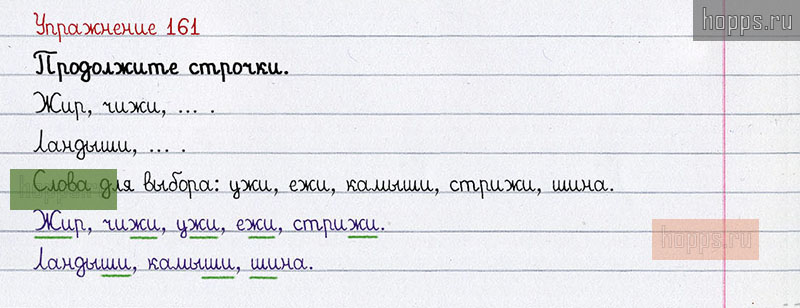 Упражнение 161
hopps.ru
Продолжите строчки.
Жир, чижи, ... .
Ландыши, ... .
Слова для выбора: ужи, ежи, камыши, стрижи, шина.
hopps.ru
Жир, чижи, ужи, ежи, стрижи.
hopps.ru
Ландыши, камыши, шина.